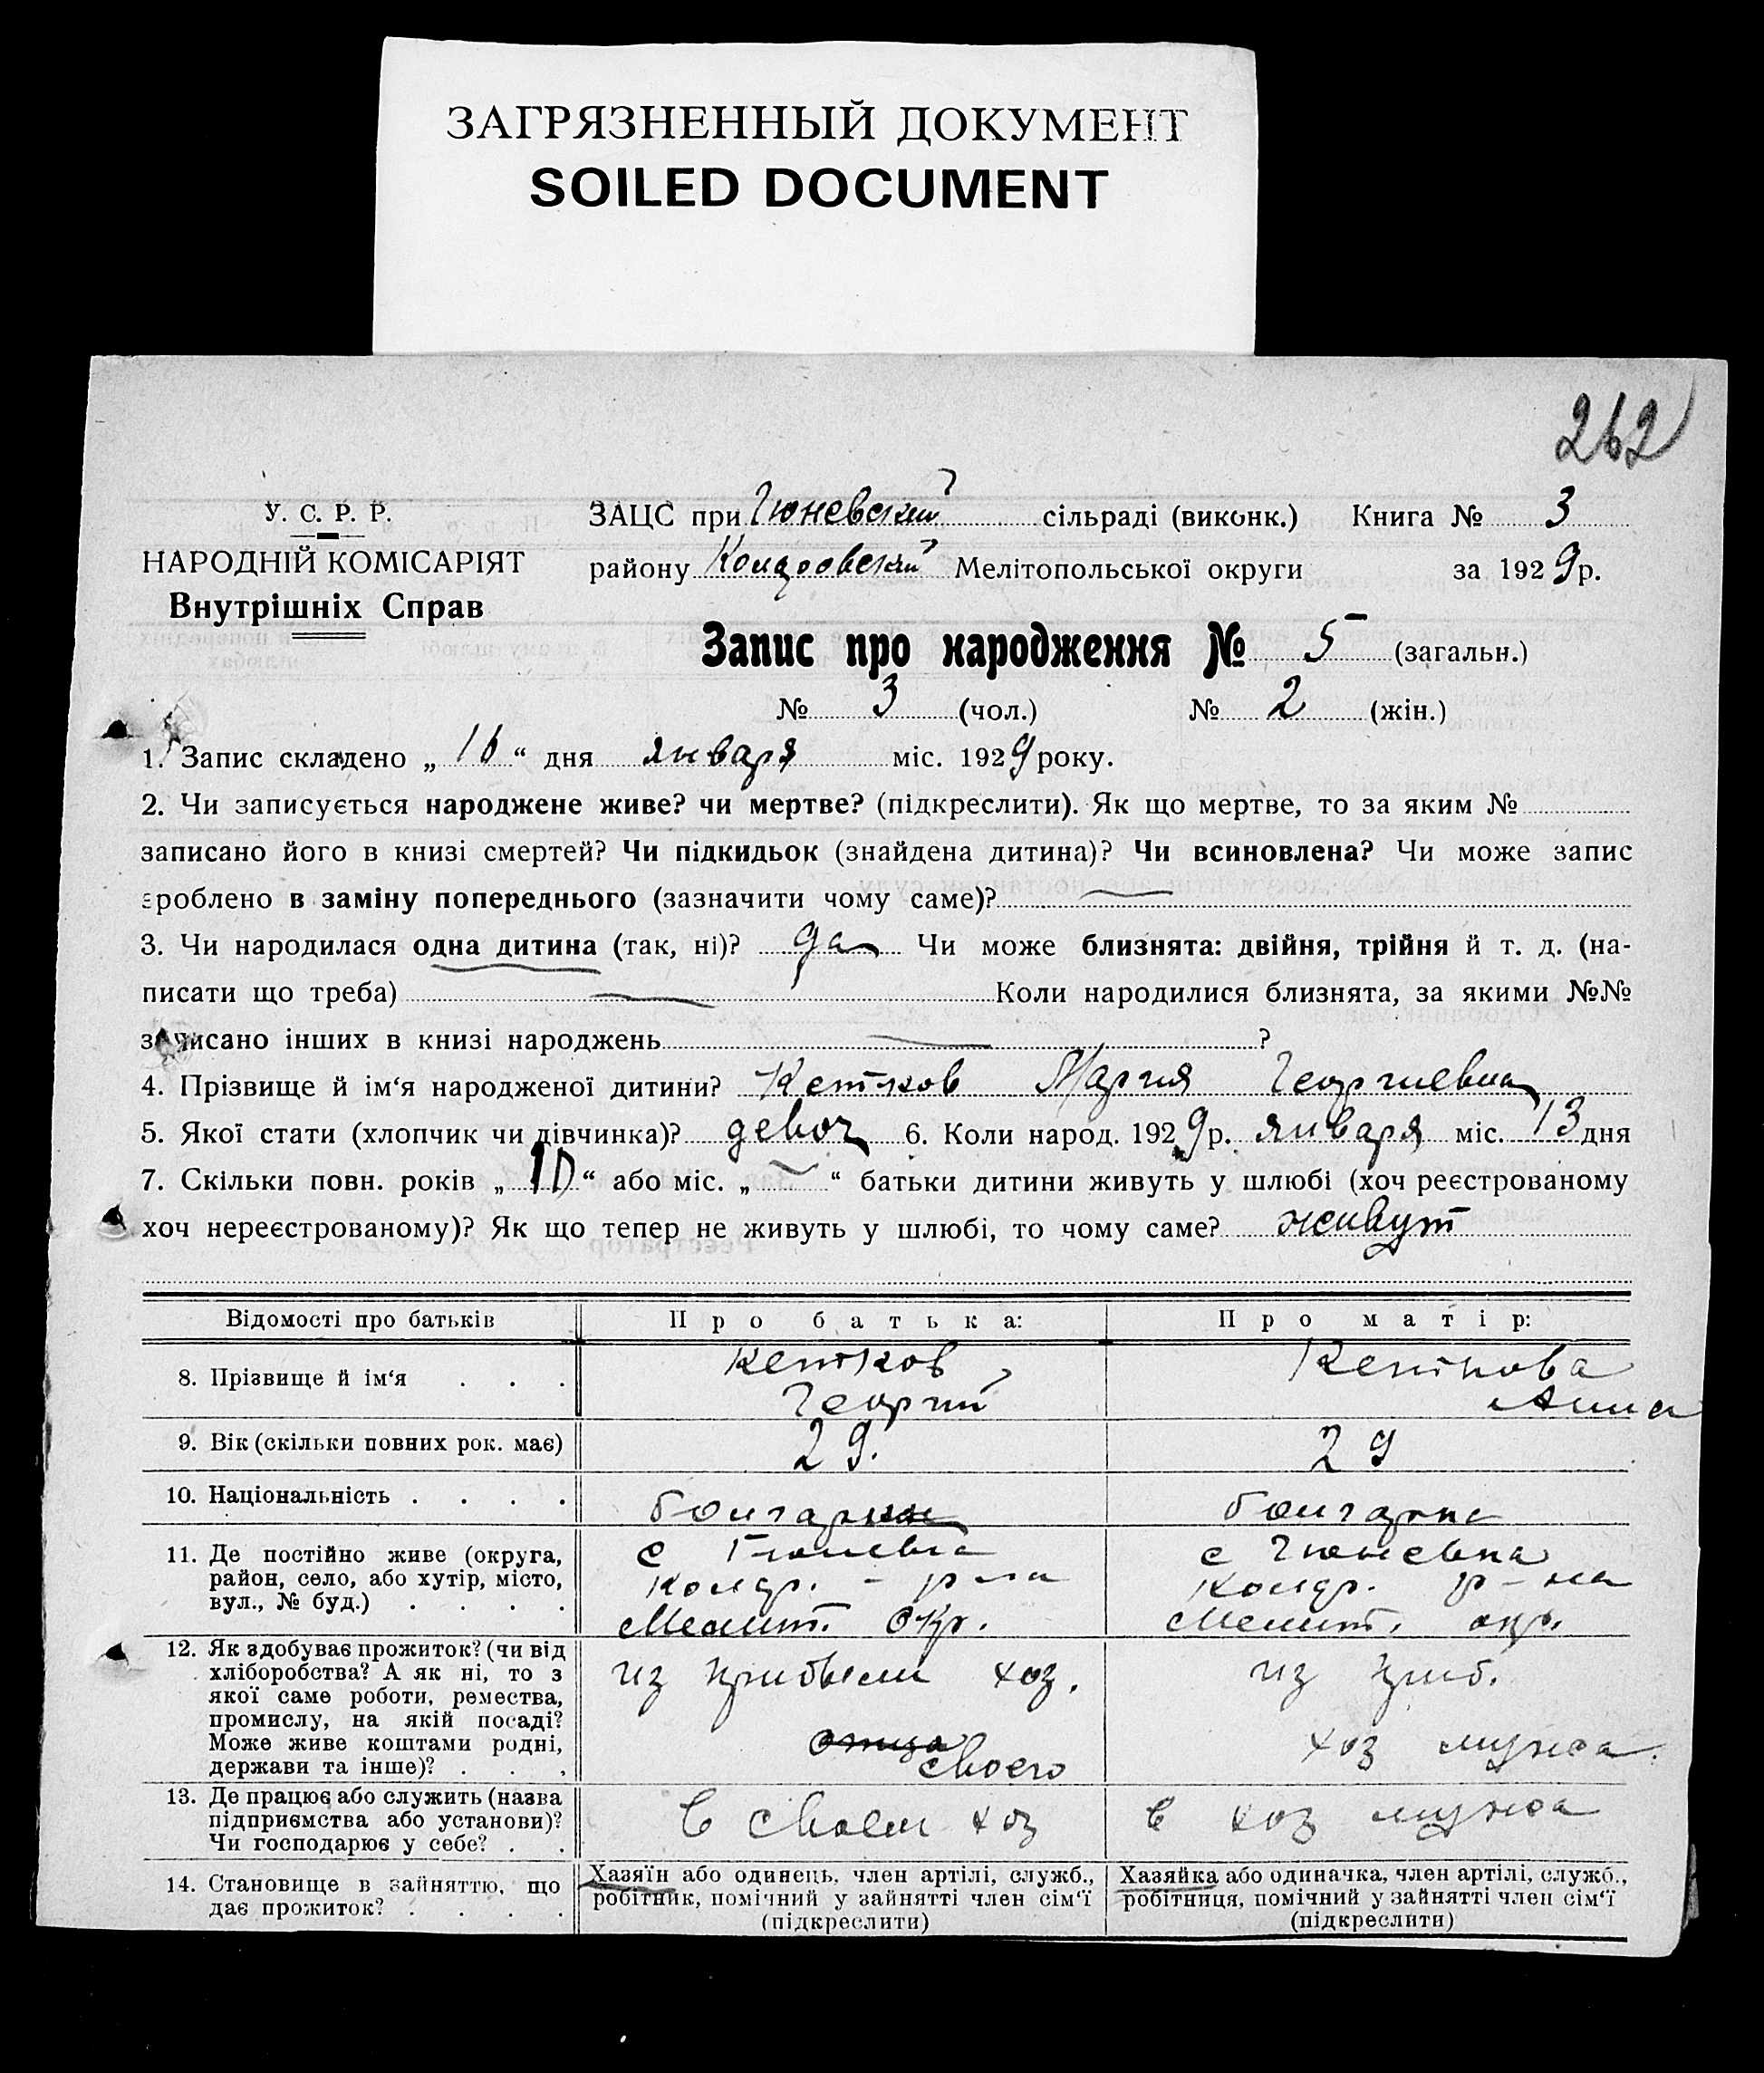 ЗАГРЯЗНЕННЫЙ ДОКУМЕНТ
SOILED DOCUMENT
262
У. С. Р. Р.
НАРОДНІЙ КОМІСАРІЯТ
Внутрішніх Справ
ЗАЦС при Гюневский сільраді (виконк.) Книга № 3
району Колдровский Мелітопольської округи за 1929 р.
Запис про народження № 5 (загальн.)
№ 3 (чол.) № 2 (жін.)
1. Запис складено „ 16 “ дня января міс. 1929 року.
2. Чи записується народжене живе? чи мертве? (підкреслити). Як що мертве, то за яким №
записано його в книзі смертей? Чи підкидьок (знайдена дитина)? Чи всиновлена? Чи може запис
зроблено в заміну попереднього (зазначити чому саме)? —
3. Чи народилася одна дитина (так, ні)? да Чи може близнята: двійня, трійня й т. д. (на-
писати що треба) — Коли народилися близнята, за якими №№
записано інших в книзі народжень — ?
4. Прізвище й ім‘я народженої дитини? Кетков Мария Георгиевна
5. Якої стати (хлопчик чи дівчинка)? девоч 6. Коли народ. 1929 р. января міс. 13 дня
7. Скільки повн. років „ 10 “ або міс. „ — “ батьки дитини живуть у шлюбі (хоч реєстрованому
хоч нереєстрованому)? Як що тепер не живуть у шлюбі, то чому саме? живут
Відомості про батьків Про батька: Про матір:
8. Прізвище й ім‘я . . . Кетков Георгий Кеткова Анна
9. Вік (скільки повних рок. має) 29. 29
10. Національність . . . . болгарин болгарка
11. Де постійно живе (округа, с Гюневка с Гюневка
район, село, або хутір, місто, Колдр. - р-на Колдр. р-на
вул., № буд.) . . . . Мелит. окр. Мелит. окр.
12. Як здобуває прожиток? (чи від
хліборобства? А як ні, то з из прибыли хоз. из приб.
якої саме роботи, ремества,
промислу, на якій посаді?
Може живе коштами родні, отца своего хоз мужа
держави та інше)? . . .
13. Де працює або служить (назва
підприємства або установи)? в своем хоз в хоз мужа
Чи господарює у себе? . .
14. Становище в зайняттю, що Хазяїн або одинець, член артілі, служб., Хазяйка або одиначка, член артілі, служб.,
дає прожиток? . . . . робітник, помічний у зайнятті член сім‘ї робітниця, помічний у зайнятті член сім‘ї
(підкреслити) (підкреслити)